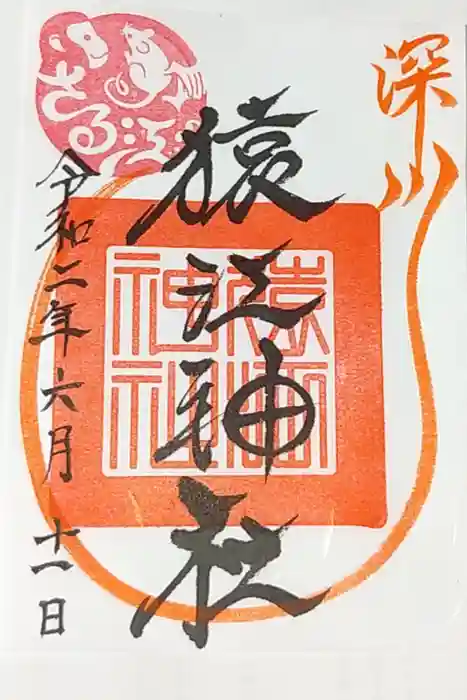 深川
猿江神社
令和二年六月十一日
さる江
猿江
神社